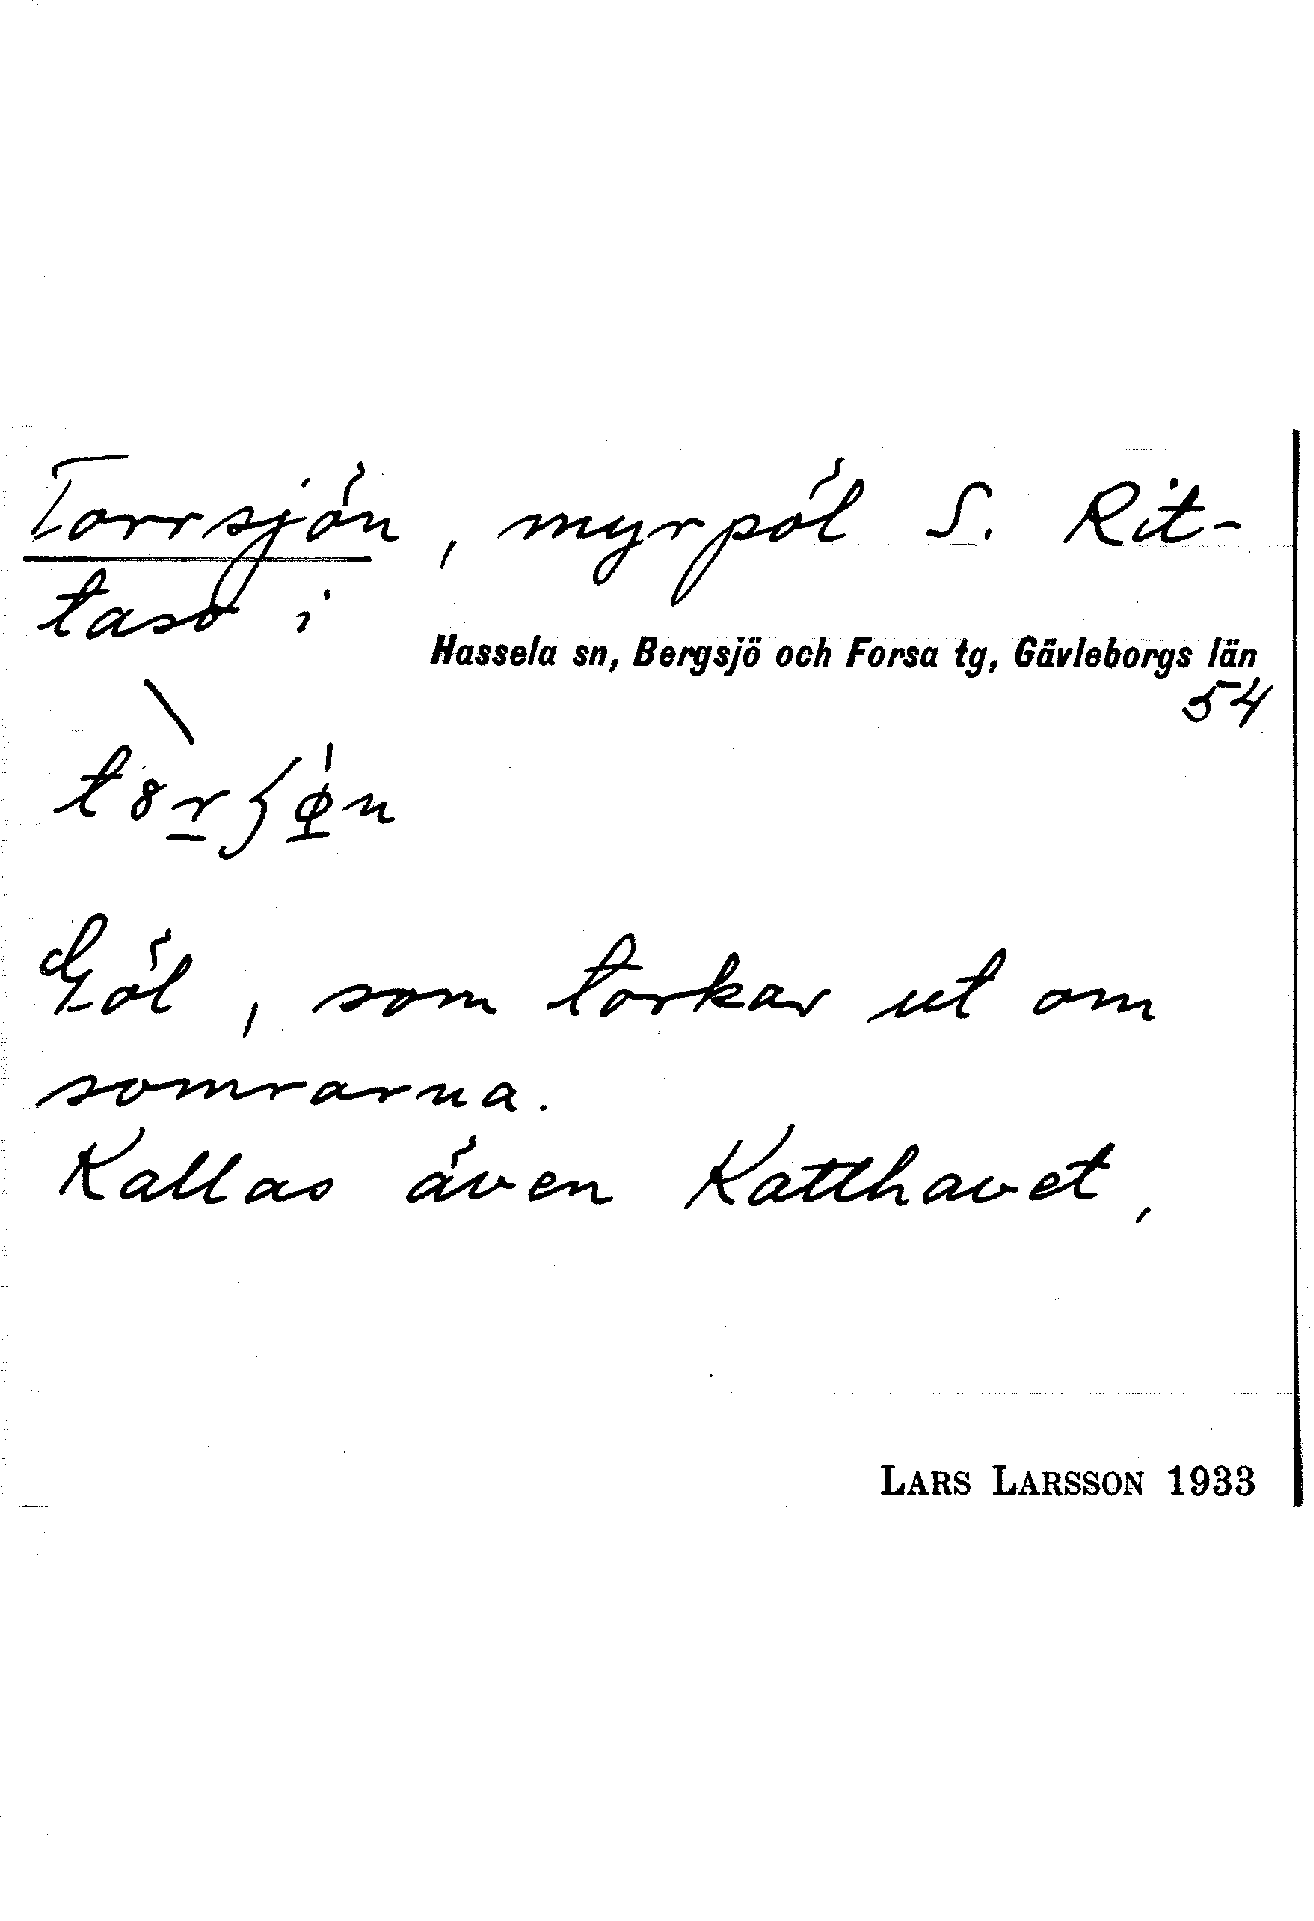 Torrsjön, myrpöl S. Rit-
taso i
Hassela sn, Bergsjö och Forsa tg, Gävleborgs län
54
Göl, som torkar ut om
somrarna.
Kallas även Katthavet,
LARS LARSSON 1933